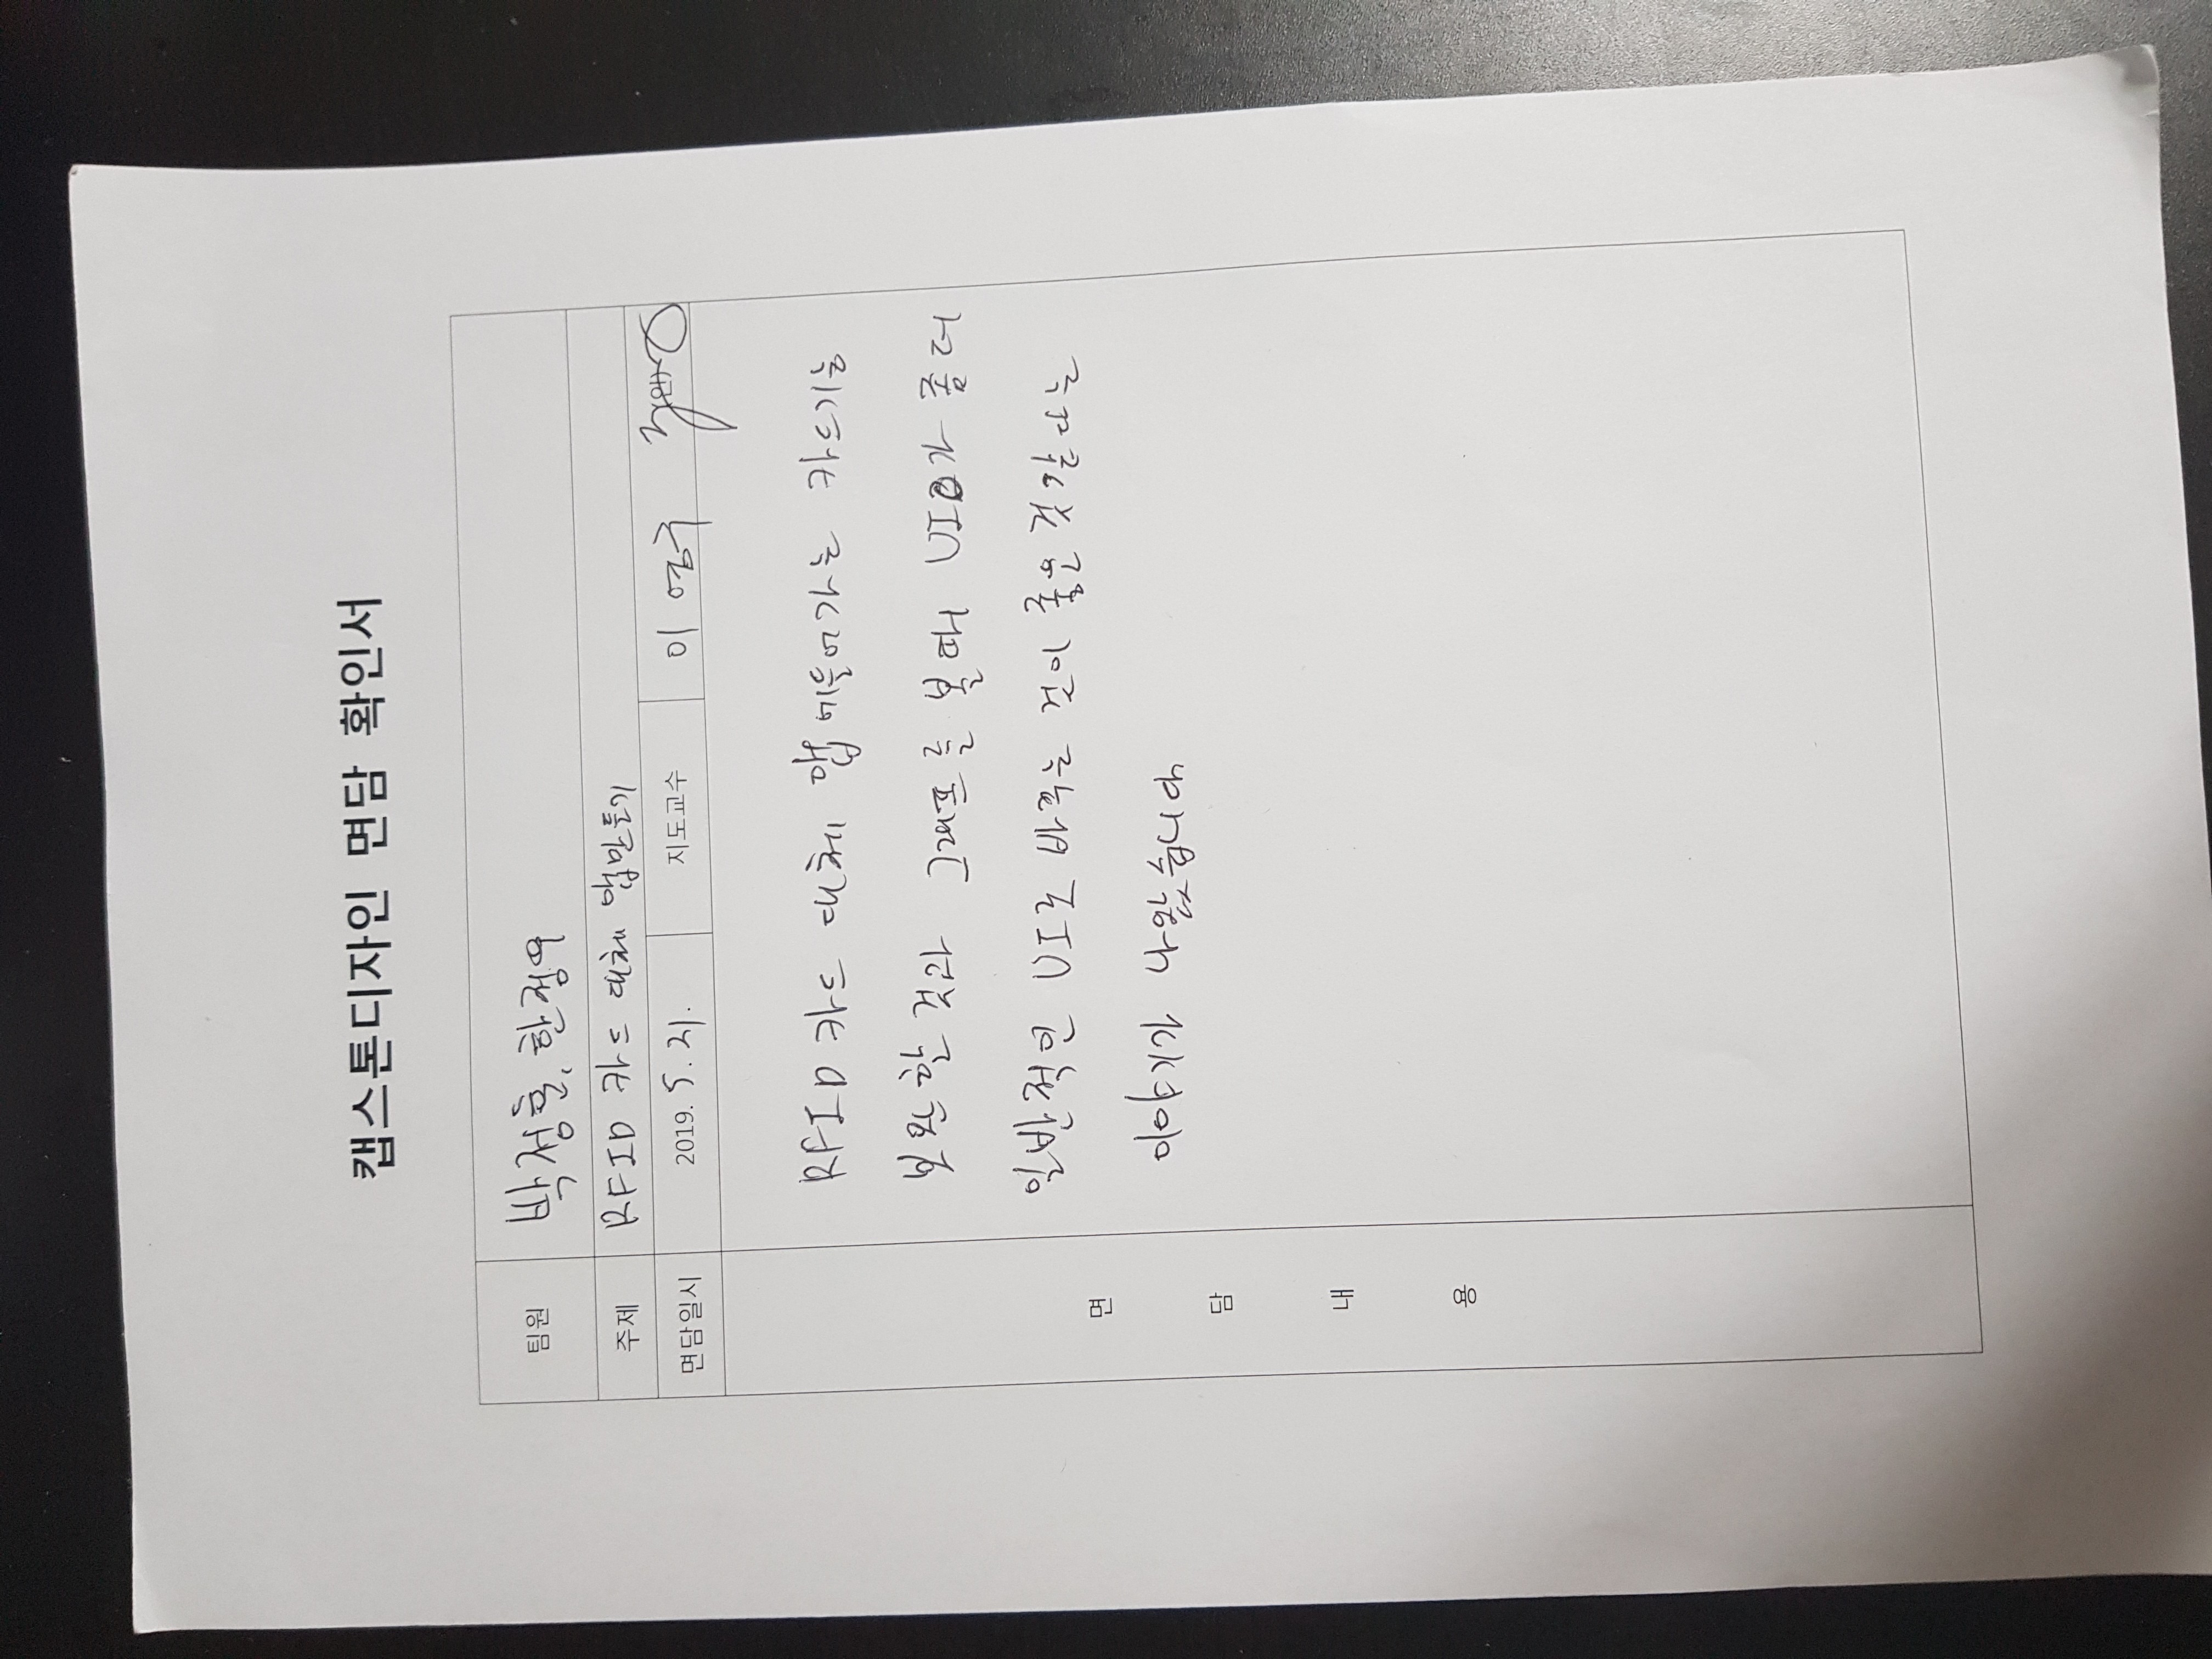 캡스톤디자인 면담 확인서
팀원 박정훈, 한정우
주제 RFID 카드 대체 앱만들기
면담일시 2019. 5. 21. 지도교수 이 영구 (인)
면담내용
RFID 카드 대체 앱에들어가는 카드기능
보완할 것과 그래프를 볼때 UI가 좀더
일반적인 UI로 바꾸는 것이 좋은 것 같다는
이야기가 나왔습니다